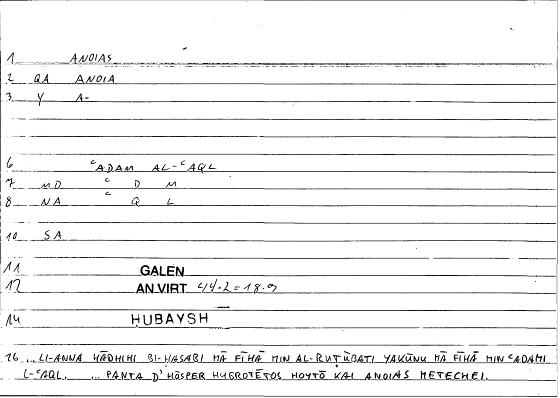 1 ANOIAS
2 QA ANOIA
3 Y A-
6 ᶜADAM AL-ᶜAQL
7 MD ᶜ D M
8 NA ᶜ Q L
10 SA
11 GALEN
12 AN.VIRT 44.2=18.9
14 HUBAYSH
16 ...LI-ANNA HĀDHIHI BI-HASABI MĀ FĪHĀ MIN AL-RUṬŪBATI YAKŪNU MĀ FĪHĀ MIN ᶜADAMI
L-ᶜAQL. ... PANTA D' HŌSPER HUGROTĒTOS HOYTŌ KAI ANOIAS METECHEI.